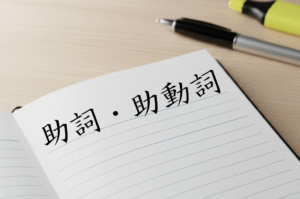 助詞・助動詞